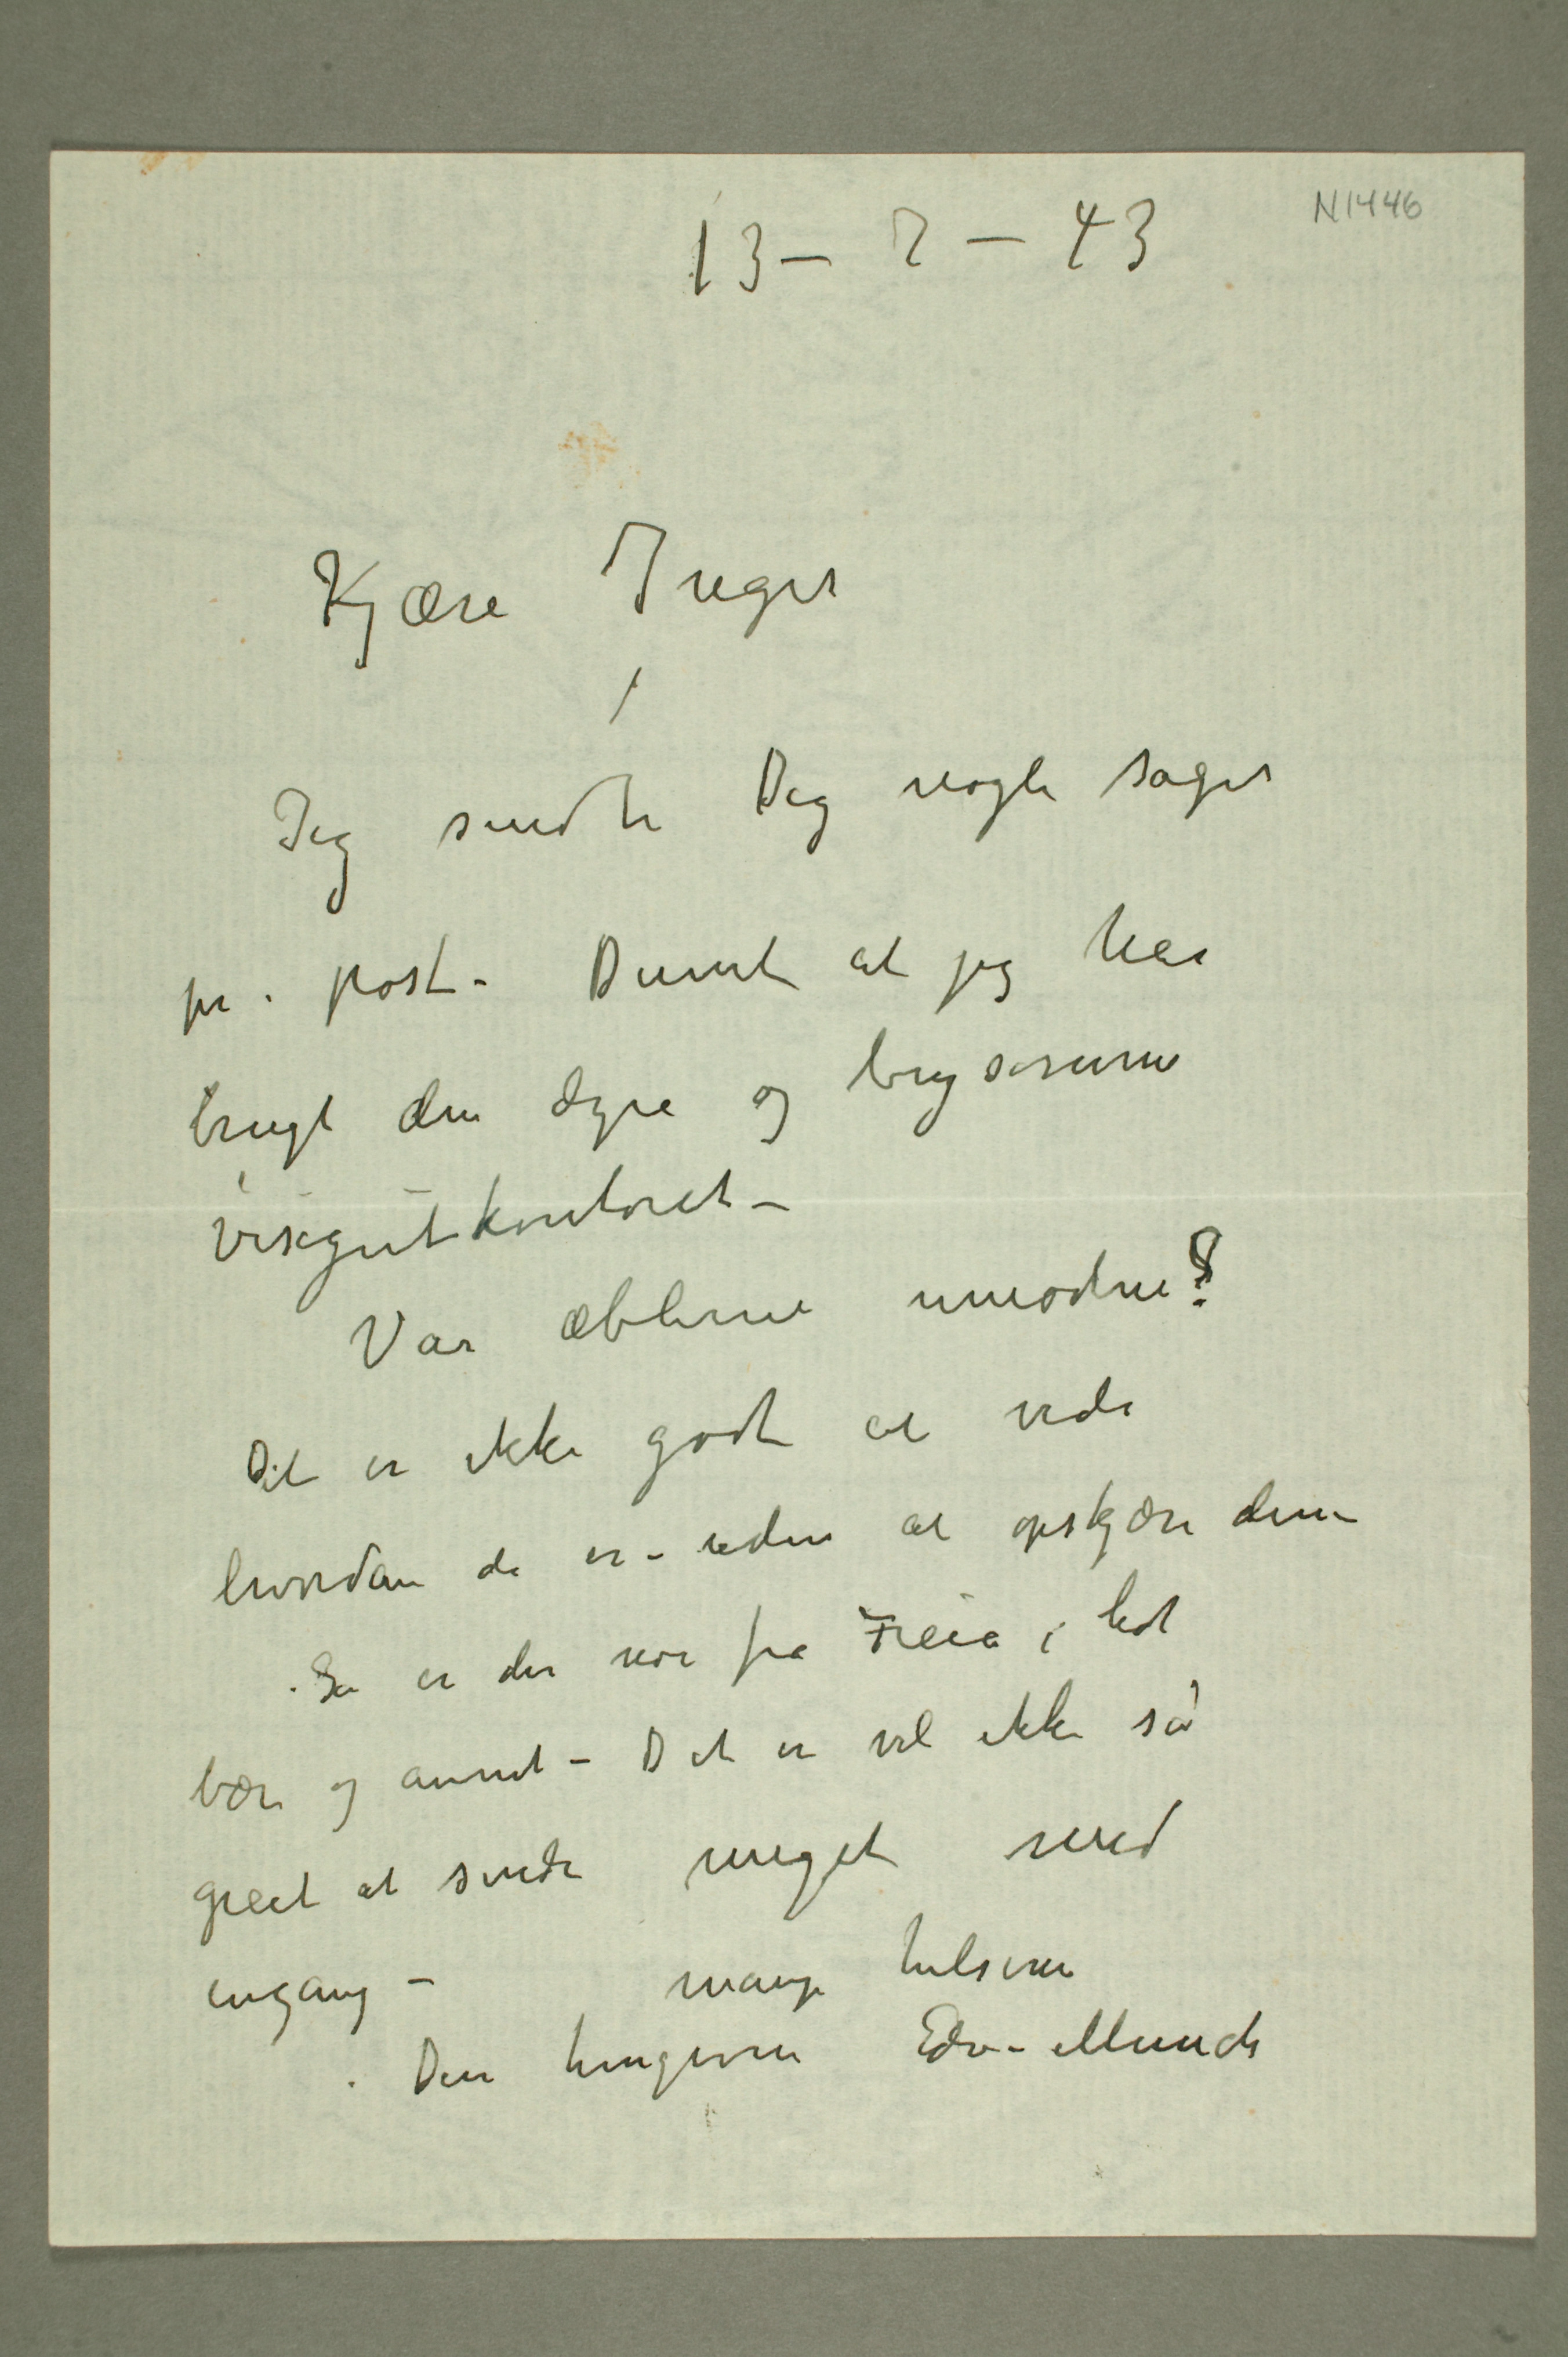 N1446
13 – 2 – 43
Kjære Inger
Jeg sendte Dig nogle sager
pr. post – Dumt at jeg har
brugt den dyre og brysomme
visergutkontoret –
Var æblerne umodne?
Det er ikke godt at vide
hvordan de er – uden at opskjære dem
Så er der noe fra Freia,
bær og annet – Det er vel ikke så
greit at sende meget med
engang – mange hilsener
Din hengivne Edv. Munch